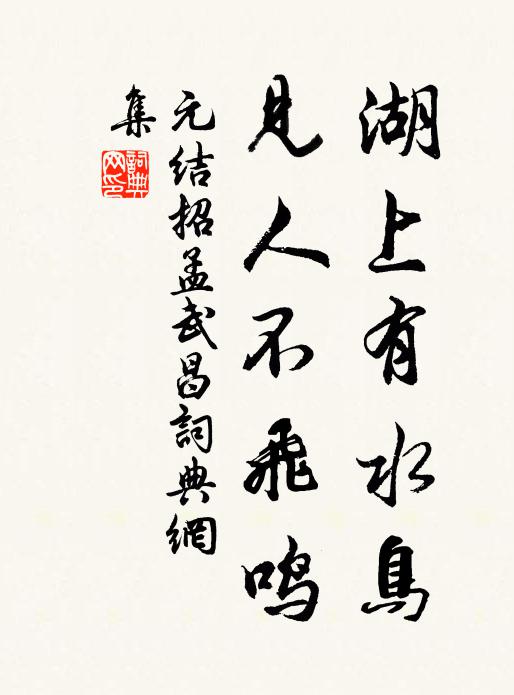 湖上有水鳥
見人不飛鳴
元结招孟武昌詞典網
集
詞典
网印